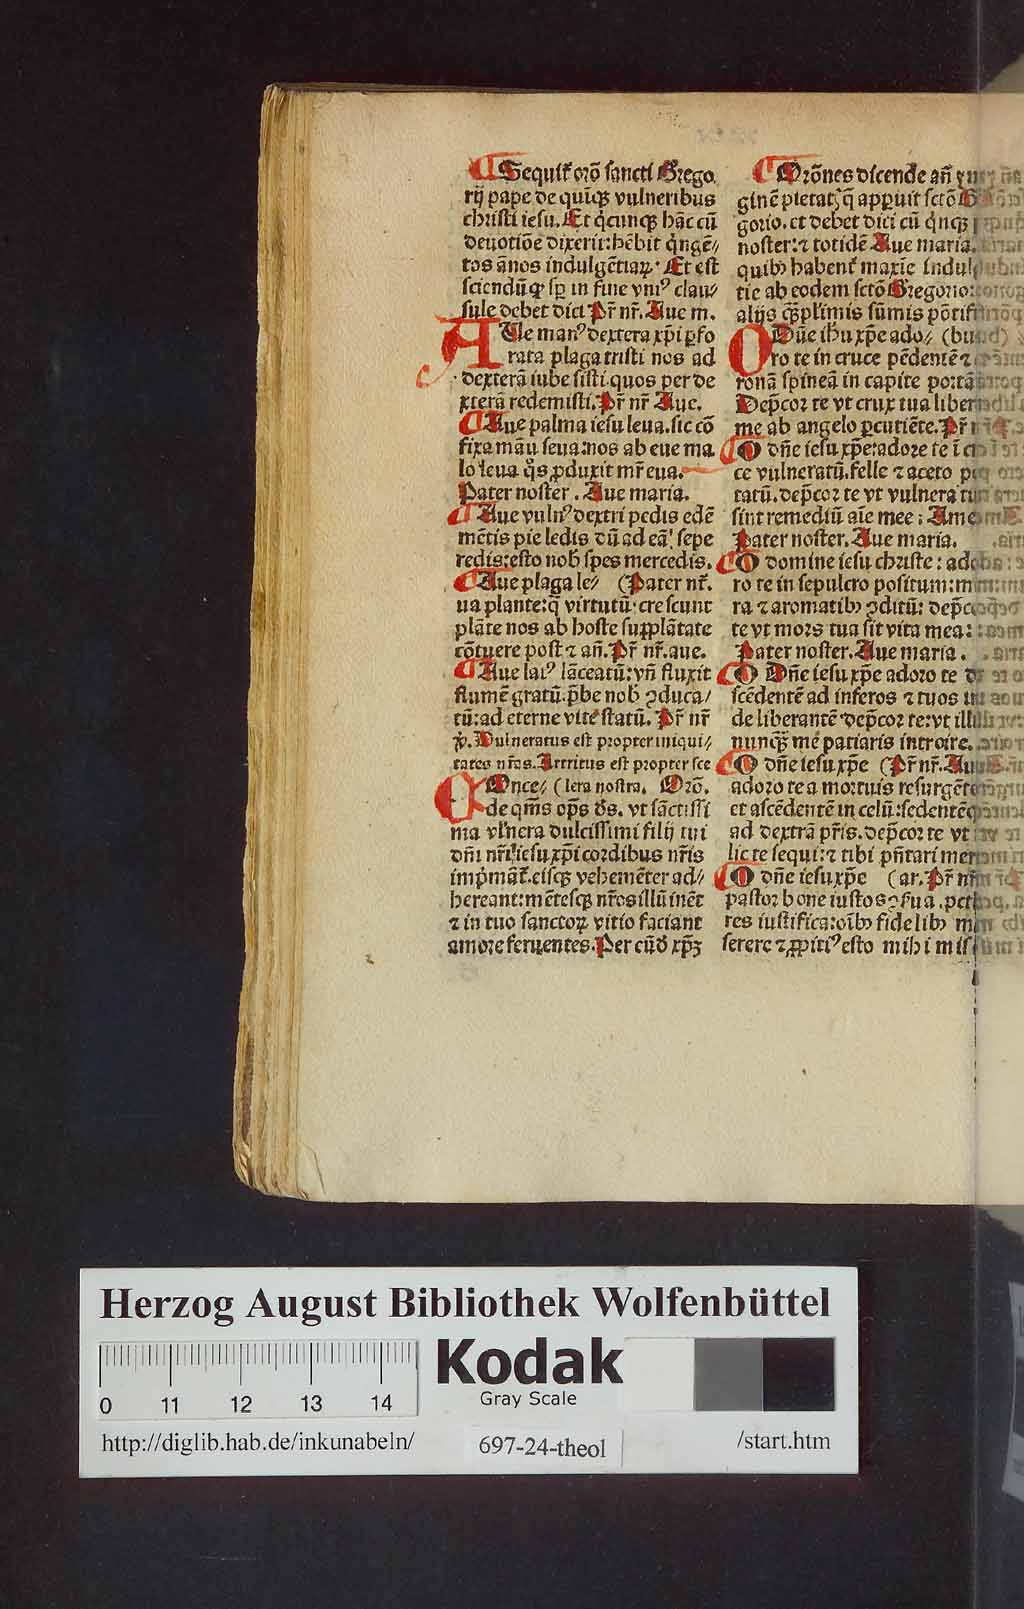 Sequit᷑ orō sancti Grego
rij pape de qui̅qꝫ vulneribus
christi iesu. Et q̇cunqꝫ hāc cū
deuotiōe dixerit: hēbit q̇ngē⸗
tos ānos indulgētiaꝝ. Et est
sciendū ꝙ sꝑ in fine vniꝰ clau⸗
sule debet dici Pr̄ nr̄. Aue m.
AUe manꝰ dextera xp̄i ꝑfo
rata plaga tristi nos ad
dexterā iube sisti quos per de
xterā redemisti. Pr̄ nr̄ Aue.
Aue palma iesu leua. sic cō
fixa manu seua: nos ab eue ma
lo leua q̊s ꝓduxit mr̄ eua.
Pater noster. Aue maria.
Aue vulnꝰ dextri pedis edē
mētis pie ledis dū ad eā sepe
redis: esto nob̄ spes mercedis.
Aue plaga le⸗ (Pater nr̄.
ua plante: q̄ virtutū crescunt
plāte nos ab hoste supplātate
cōtuere post ⁊ an̄. Pr̄ nr̄. aue.
Aue latꝰ lāceatū: vn̄ fluxit
flumē gratū. p̄be nob̄ ꝯduca⸗
tū: ad eterne vite statū. Pr̄ nr̄
v̄. Vulneratus est propter iniqui⸗
tates nr̄as. Attritus est propter sce
COnce⸗ (lera nostra. Orō.
de qm̄s op̄s d̄s. vt sāctissi
ma vl̄nera dulcissimi filij tui
dn̄i nr̄i iesu xp̄i cordibus nr̄is
impṁat᷑. eisqꝫ vehemēter ad⸗
hereant: mētesqꝫ nr̄os illūinēt
⁊ in tuo sanctoꝝ vitio faciant
amore feruentes. Per eūd̄ xp̄ꝫ
Orōnes dicende an̄
ginē pietatꝭ q̄ apparuit sctō
gorio. et debet dici cū q̇nqꝫ
noster: ⁊ totidē Aue maria.
quibꝰ habent᷑ maxīe indul
tie ab eodem sctō Gregorio:
alijs qꝫplimis sūmis pōtifi
O Dn̄e ihū xp̄e ado⸗
ro te in cruce pēdentē ⁊
ronā spineā in capite portā
Dep̄cor te vt crux tua liber
me ab angelo ꝑcutiēte. Pr̄
O dn̄e iesu xp̄e: adoro te ī
ce vulneratū. felle ⁊ aceto
tatū. dep̄cor te vt vulnera
sint remediū aīe mee: Ame
Pater noster. Aue maria.
O domine iesu christe: ado
ro te in sepulcro positum:
ra ⁊ aromatibꝰ ꝯditū: dep̄c
te vt mors tua sit vita mea:
Pater noster. Aue maria.
O Dn̄e iesu xp̄e adoro te
scēdentē ad inferos ⁊ tuos
de liberantē dep̄cor te: vt
nunqꝫ me patiaris introire.
O dn̄e iesu xp̄e (Pr̄ nr̄. Au
adoro te a mortuis resurgēte
et ascēdentē in celū: sedentē
ad dextrā pr̄is. dep̄cor te vt
lic te sequi: ⁊ tibi pn̄tari mer
O dn̄e iesu xp̄e (ar. Pr̄ nr̄
pastor bone iustos ꝯserua. pctō
res iustifica: oībꝰ fidelibꝰ
serere ⁊ ꝓpitiꝰ esto mihi
Herzog August Bibliothek Wolfenbüttel
0 11 12 13 14
Kodak
Gray Scale
http://diglib.hab.de/inkunabeln/ 697-24-theol /start.htm